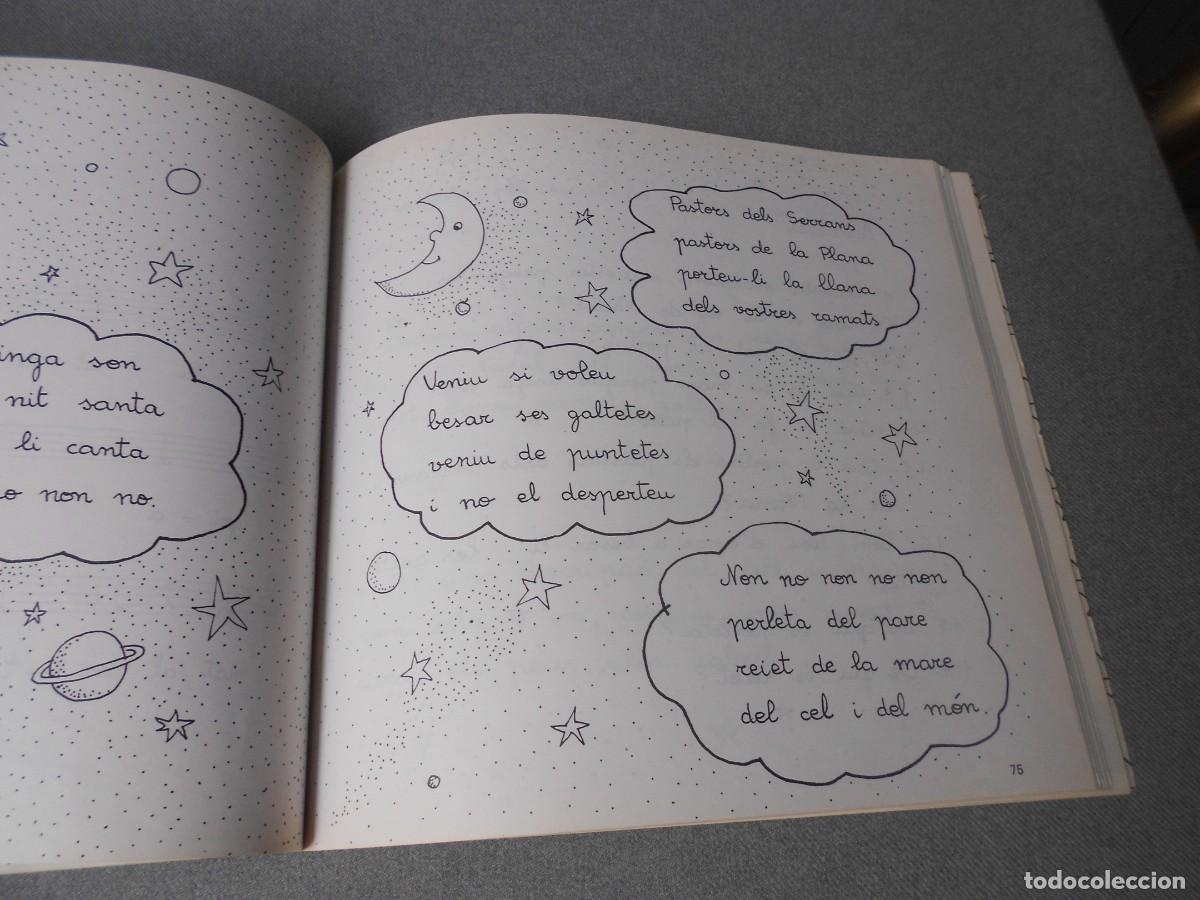 son
nit santa
li canta
non no.
Pastors dels Serrans
pastors de la Plana
porteu-li la llana
dels vostres ramats
Veniu si voleu
besar ses galtetes
veniu de puntetes
i no el desperteu
Non no non no non
perleta del pare
reiet de la mare
del cel i del món.
75
todocoleccion